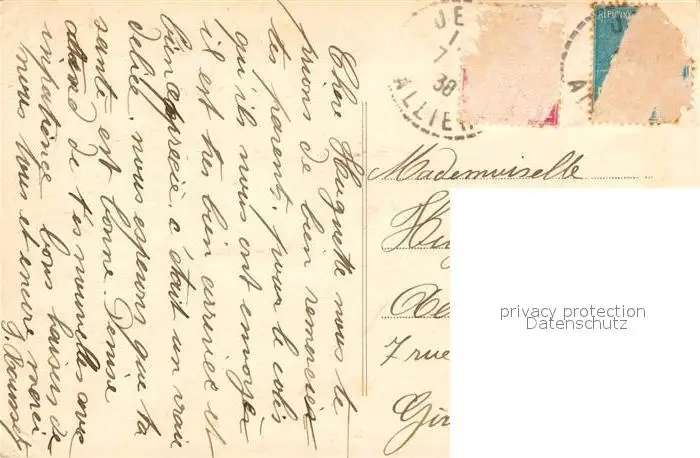 Chère Huguette nous te
prions de bien remercier
tes parents, pour le colis
qu'ils nous ont envoyer
il est tes bien arrivée et
bien apprecié, c'était un vraie
delice, nous esperons que ta
santé est bonne. Denise
attend de tes nouvelles avec
inpatience bons baisers de
nous tous et encore merci
JE
1
7
38
ALLIER
RÉPU
Mademoiselle
Hug
7 rue
Gir
privacy protection
Datenschutz